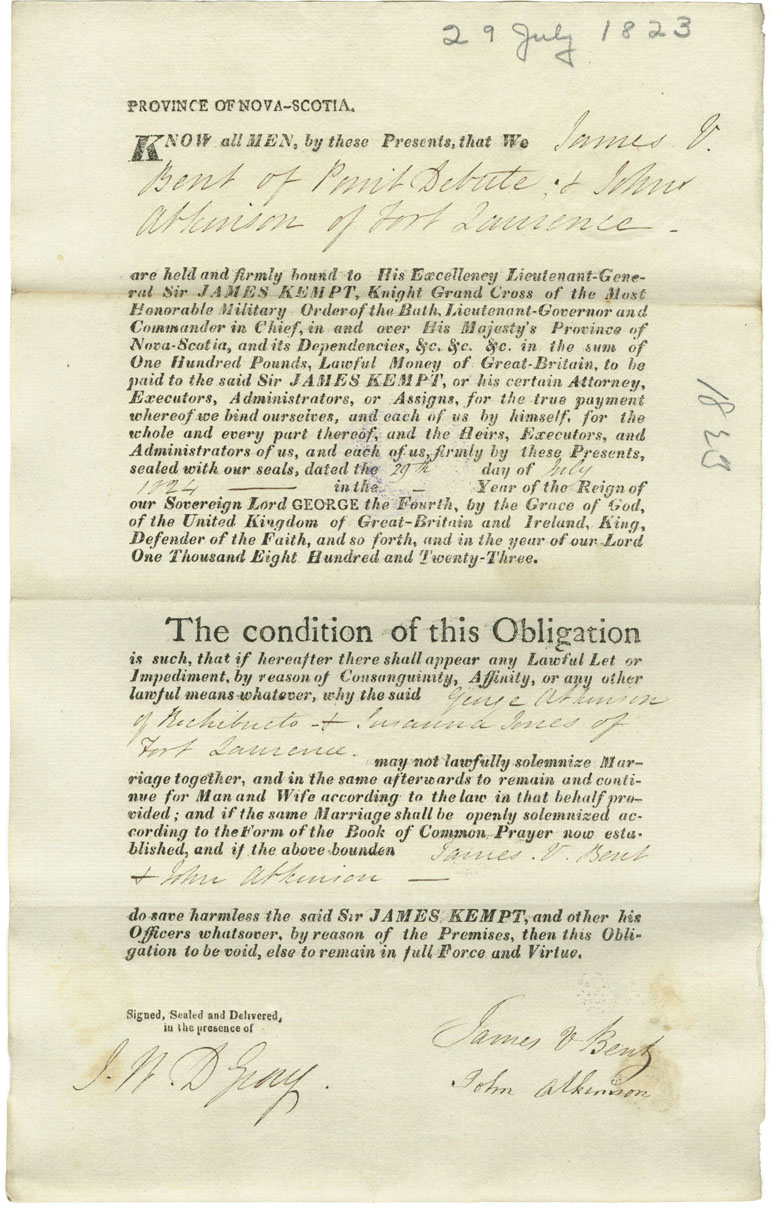 29 July 1823
PROVINCE OF NOVA-SCOTIA.
KNOW all MEN, by these Presents, that We James V.
Bent of Point Debute & John
Atkinson of Fort Laurence -
are held and firmly bound to His Excellency Lieutenant-Gene-
ral Sir JAMES KEMPT, Knight Grand Cross of the Most
Honorable Military Order of the Bath, Lieutenant-Governor and
Commander in Chief, in and over His Majesty's Province of
Nova-Scotia, and its Dependencies, &c. &c. &c. in the sum of
One Hundred Pounds, Lawful Money of Great-Britain, to be
paid to the said Sir JAMES KEMPT, or his certain Attorney,
Executors, Administrators, or Assigns, for the true payment
whereof we bind ourselves, and each of us by himself, for the
whole and every part thereof, and the Heirs, Executors, and
Administrators of us, and each of us, firmly by these Presents,
sealed with our seals, dated the 29th day of July
1824 — in the - Year of the Reign of
our Sovereign Lord GEORGE the Fourth, by the Grace of God,
of the United Kingdom of Great-Britain and Ireland, King,
Defender of the Faith, and so forth, and in the year of our Lord
One Thousand Eight Hundred and Twenty-Three.
1823
The condition of this Obligation
is such, that if hereafter there shall appear any Lawful Let or
Impediment, by reason of Consanguinity, Affinity, or any other
lawful means whatever, why the said George Atkinson
of Richibucto - & Susanna Jones of
Fort Laurence.
may not lawfully solemnize Mar-
riage together, and in the same afterwards to remain and conti-
nue for Man and Wife according to the law in that behalf pro-
vided; and if the same Marriage shall be openly solemnized ac-
cording to the Form of the Book of Common Prayer now esta-
blished, and if the above-bounden James V. Bent
& John Atkinson —
do save harmless the said Sir JAMES KEMPT, and other his
Officers whatsover, by reason of the Premises, then this Obli-
gation to be void, else to remain in full Force and Virtue.
Signed, Sealed and Delivered,
in the presence of
J. W. D Gray.
James V Bent
John Atkinson